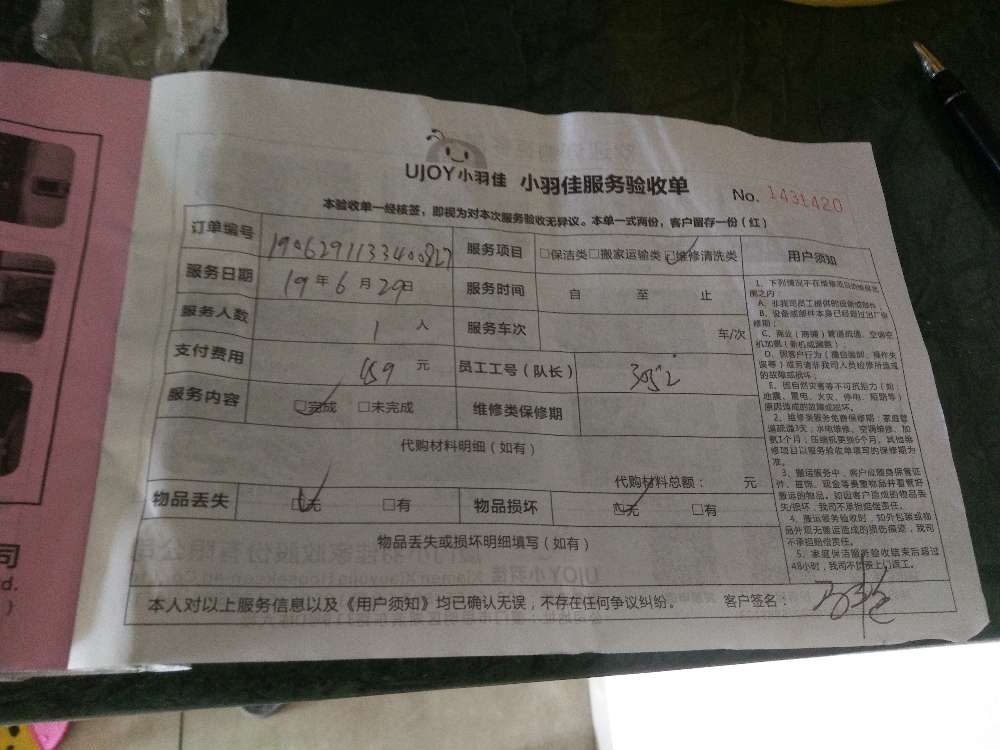 UJOY小羽佳 小羽佳服务验收单
No. 1431420
本验收单一经核签，即视为对本次服务验收无异议。本单一式两份，客户留存一份（红）
订单编号 1906291133400827 服务项目 □保洁类□搬家运输类☑维修清洗类 用户须知
服务日期 19 年 6 月 29 日 服务时间 自 至 止
服务人数 1 人 服务车次 车/次
支付费用 459 元 员工工号（队长） 3052
服务内容 ☑完成 □未完成 维修类保修期
代购材料明细（如有）
代购材料总额： 元
物品丢失 ☑无 □有 物品损坏 ☑无 □有
物品丢失或损坏明细填写（如有）
1、下列情况不在维修项目的维保范
围之内
A、非我司员工提供的设备或部件
B、设备或部件本身已经超过出厂保
修期；
C、商业（商铺）管道疏通、空调空
机加氨（新机或漏氨）
D、因客户行为（擅自装卸、操作失
误等）或另请非我司人员检修所造成
的故障或损坏；
E、因自然灾害等不可抗拒力（如：
地震、雷电、火灾、停电、短路等）
原因造成的故障或损坏。
2、维修类服务免费保修期：家庭管
道疏通3天；水电维修、空调维修、加
氨1个月；压缩机更换6个月。其他维
修项目以服务验收单填写的保修期为
准。
3、搬运服务中，客户应随身保管证
件、首饰、现金等贵重物品并看管好
搬运的物品。如因客户造成的物品丢
失/损坏，我司不承担赔偿责任。
4、搬运服务验收时，如外包装或物
品外观无搬运造成的损伤痕迹，我司
不承担赔偿责任。
5、家庭保洁服务验收结束后超过
48小时，我司不负责上门返工。
本人对以上服务信息以及《用户须知》均已确认无误，不存在任何争议纠纷。 客户签名：
司
td.
)